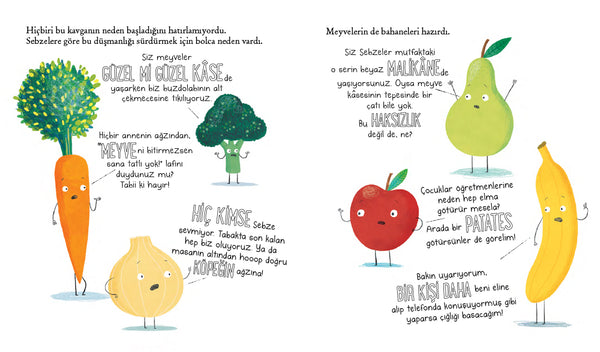 Hiçbiri bu kavganın neden başladığını hatırlamıyordu.
Sebzelere göre bu düşmanlığı sürdürmek için bolca neden vardı.
Siz meyveler
GÜZEL Mİ GÜZEL KÂSEde
yaşarken biz buzdolabının alt
çekmecesine tıkılıyoruz.
Hiçbir annenin ağzından,
"MEYVEni bitirmezsen
sana tatlı yok!" lafını
duydunuz mu?
Tabii ki hayır!
HİÇ KİMSE Sebze
sevmiyor. Tabakta son kalan
hep biz oluyoruz. Ya da
masanın altından hooop doğru
KÖPEĞİN ağzına!
Meyvelerin de bahaneleri hazırdı.
Siz Sebzeler mutfaktaki
o serin beyaz MALİKÂNEde
yaşıyorsunuz. Oysa meyve
kâsesinin tepesinde bir
çatı bile yok.
Bu HAKSIZLIK
değil de, ne?
Çocuklar öğretmenlerine
neden hep elma
götürür mesela?
Arada bir PATATES
götürsünler de görelim!
Bakın uyarıyorum,
BİR KİŞİ DAHA beni eline
alıp telefonda konuşuyormuş gibi
yaparsa çığlığı basacağım!